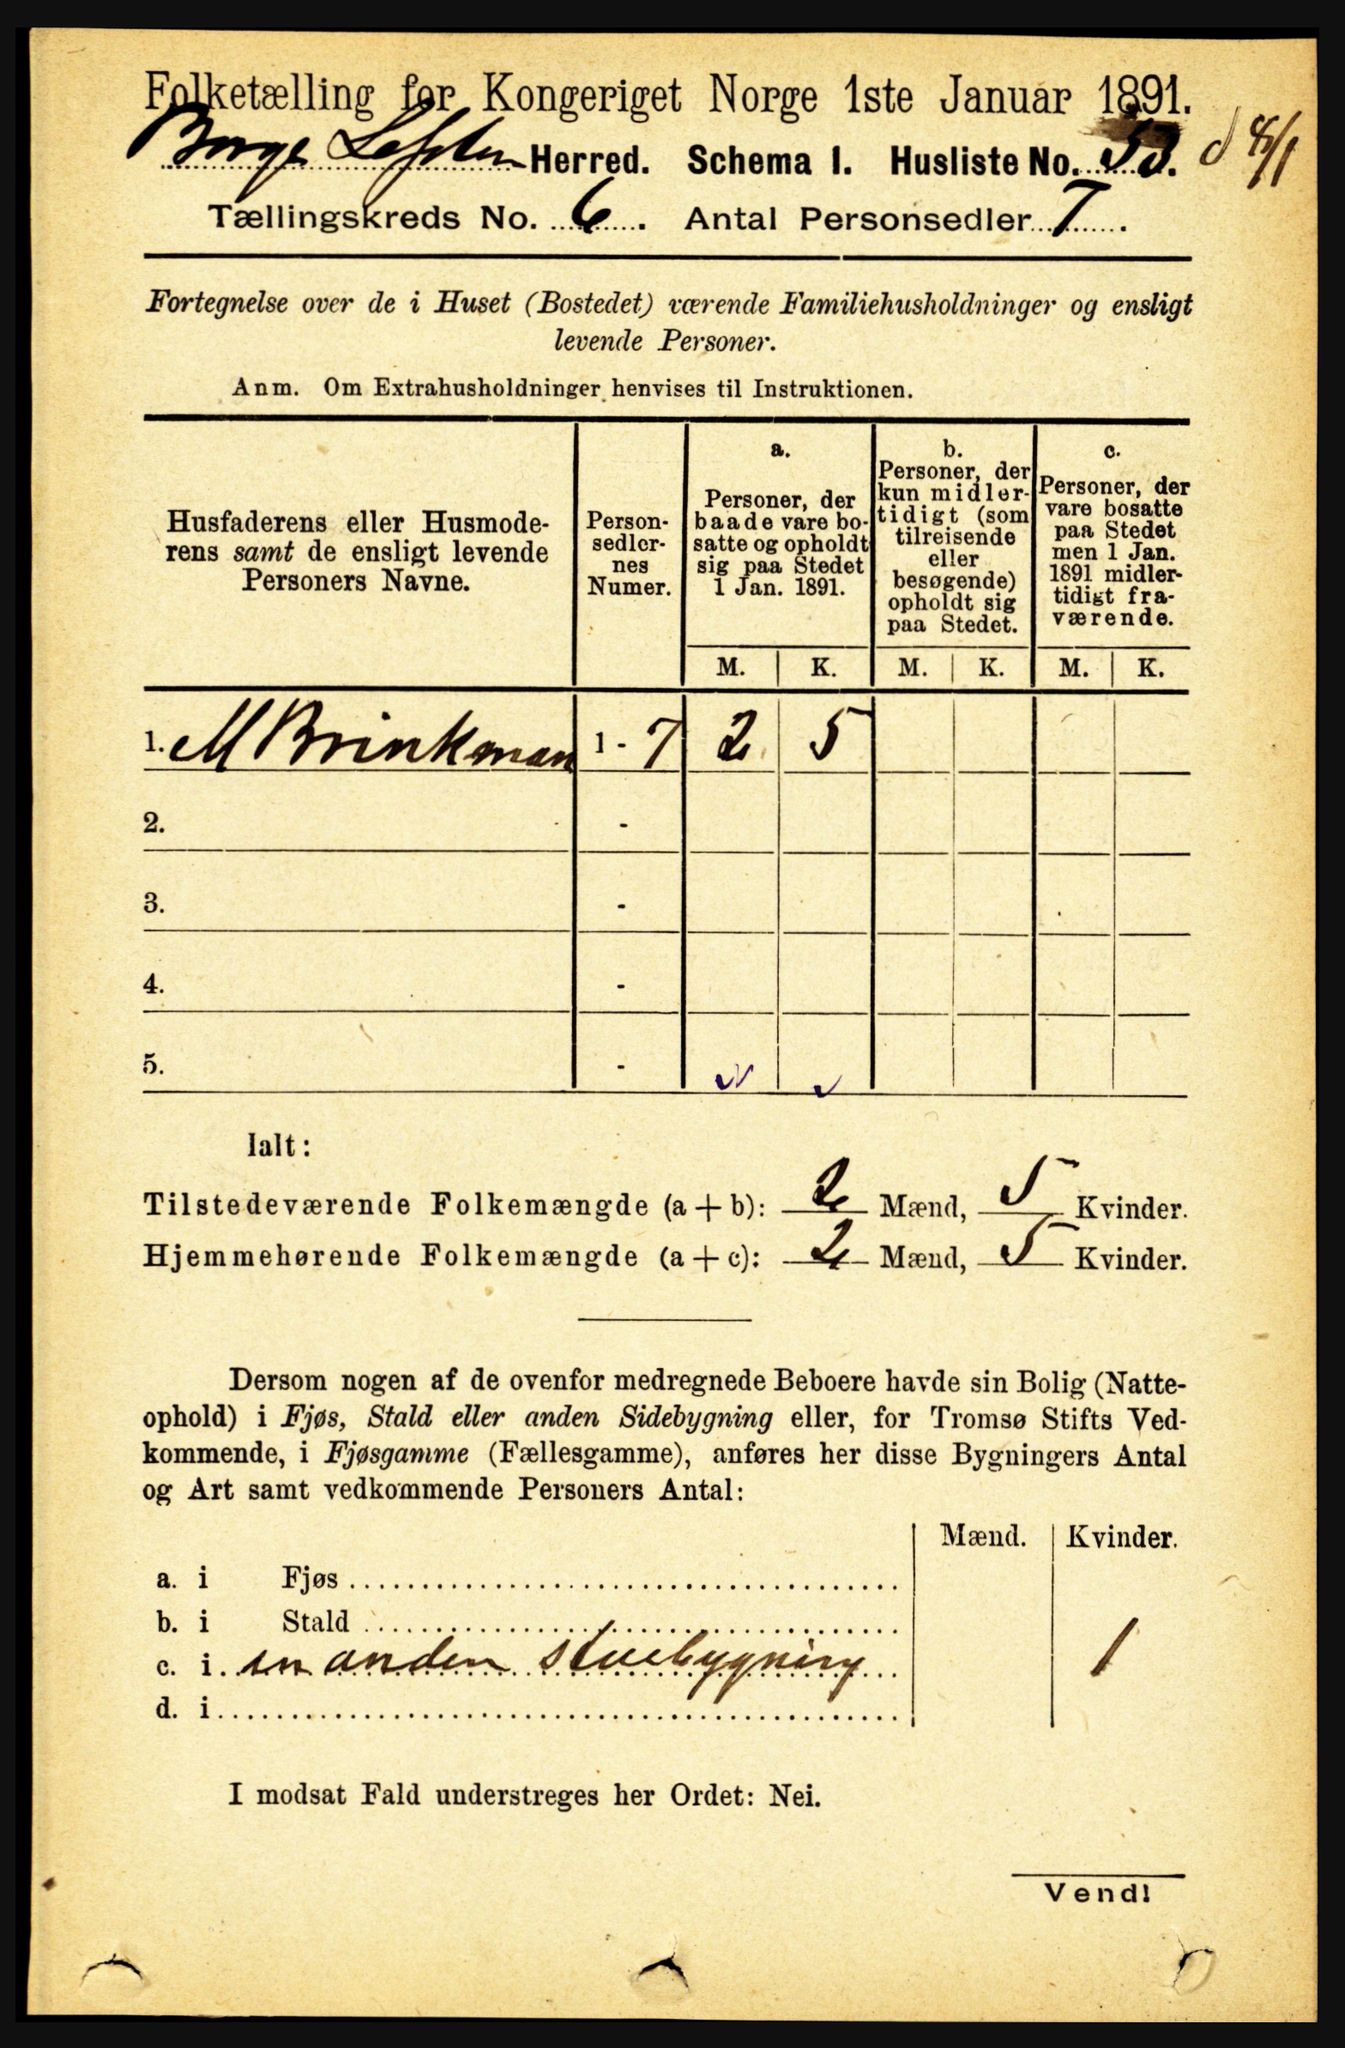 Folketælling for Kongeriget Norge 1ste Januar 1891.
Borge Lofoten Herred. Schema 1. Husliste No. 53. d 8/1
Tællingskreds No. 6. Antal Personsedler 7.
Fortegnelse over de i Huset (Bostedet) værende Familiehusholdninger og ensligt
levende Personer.
Anm. Om Extrahusholdninger henvises til Instruktionen.
Husfaderens eller Husmode-
rens samt de ensligt levende
Personers Navne.
Person-
sedler-
nes
Numer.
a.
Personer, der
baade vare bo-
satte og opholdt
sig paa Stedet
1 Jan. 1891.
b.
Personer, der
kun midler-
tidigt (som
tilreisende
eller
besøgende)
opholdt sig
paa Stedet.
c.
Personer, der
vare bosatte
paa Stedet
men 1 Jan.
1891 midler-
tidigt fra-
værende.
M. K. M. K. M. K.
1. M Brinkman 1 - 7 2 5
2. -
3. -
4. -
5. -
Ialt:
Tilstedeværende Folkemængde (a + b): 2 Mænd, 5 Kvinder.
Hjemmehørende Folkemængde (a + c): 2 Mænd, 5 Kvinder.
Dersom nogen af de ovenfor medregnede Beboere havde sin Bolig (Natte-
ophold) i Fjøs, Stald eller anden Sidebygning eller, for Tromsø Stifts Ved-
kommende, i Fjøsgamme (Fællesgamme), anføres her disse Bygningers Antal
og Art samt vedkommende Personers Antal:
Mænd. Kvinder.
a. i Fjøs
b. i Stald
c. i en anden stuebygning 1
d. i
I modsat Fald understreges her Ordet: Nei.
Vend!